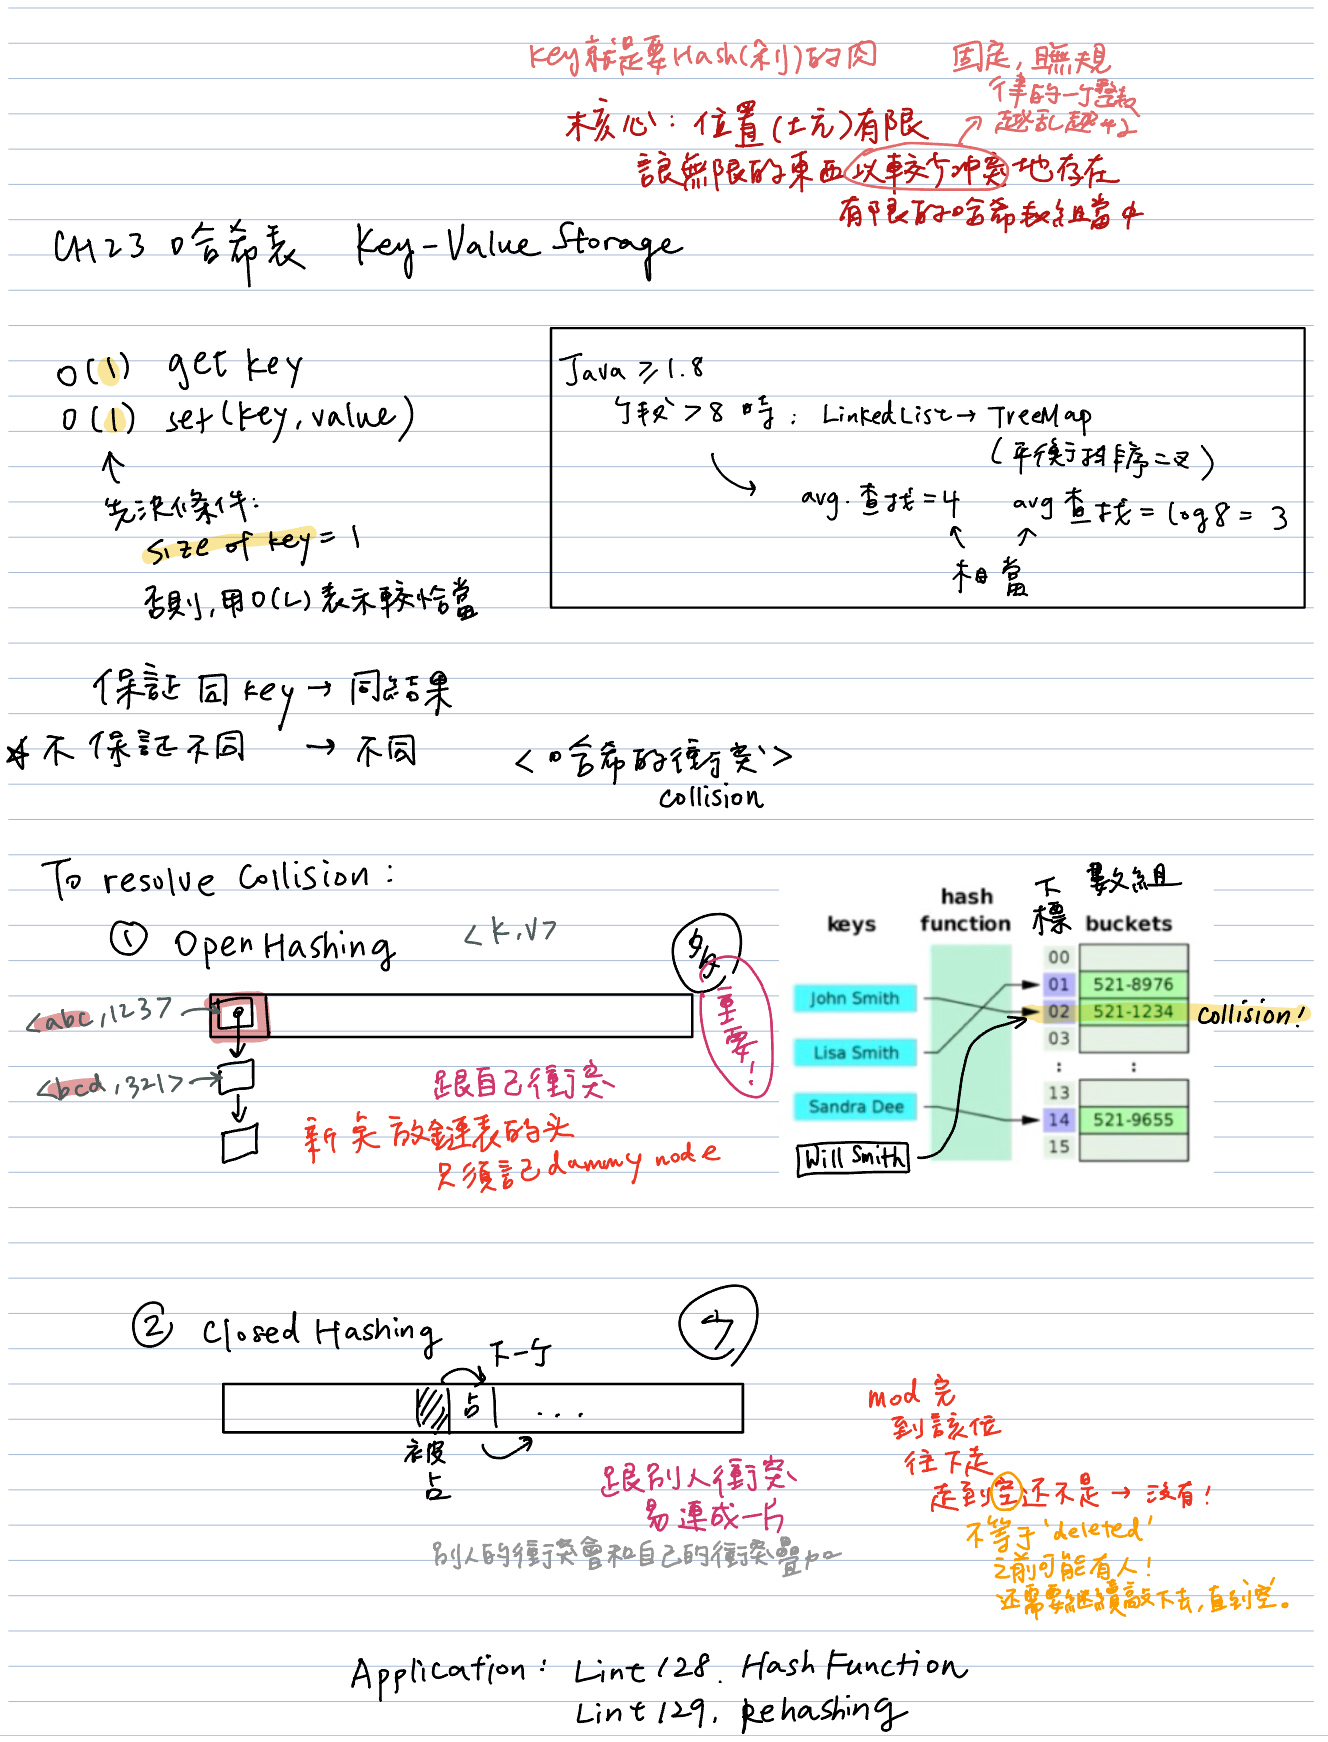 Key就是要Hash(剁)的肉
固定, 且無規
律的一个整數
越乱越好
核心: 位置(土亢)有限
讓無限的東西以較少冲突地存在
有限的哈希表組當中
CH23 哈希表 Key-Value Storage
O(1) get key
O(1) set(key, value)
先決條件:
size of key = 1
否則, 用O(L)表示較恰當
Java ≥ 1.8
个數 > 8 時: LinkedList → TreeMap
(平衡排序二叉)
avg. 查找 = 4
avg 查找 = log 8 = 3
相當
保証 同 key → 同結果
不保証不同 → 不同
<哈希的衝突>
collision
To resolve Collision:
① Open Hashing
<K,V>
多
重要!
<abc, 123>
<bcd, 321>
跟自己衝突
新矣放鏈表的头
只須記dammy node
keys
hash
function
下標
數組
buckets
00
01 521-8976
02 521-1234 Collision!
03
:
:
13
14 521-9655
15
John Smith
Lisa Smith
Sandra Dee
Will Smith
② Closed Hashing
少
下一个
占
...
被
占
跟别人衝突
易連成一片
别人的衝突會和自己的衝突疊加
mod 完
到該位
往下走
走到空还不是 → 没有!
不等于'deleted'
之前可能有人!
还需要継續敲下去, 直到空。
Application: Lint 128. Hash Function
Lint 129. Rehashing